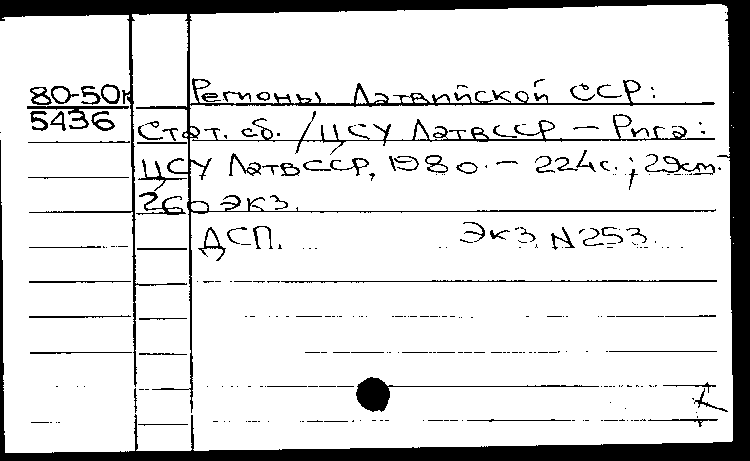 80-50к
5436
Регионы Латвийской ССР:
Стат. сб. / ЦСУ ЛатвССР. – Рига:
ЦСУ ЛатвССР, 1980. – 224с.; 29см.
260 экз.
ДСП. Экз. N253